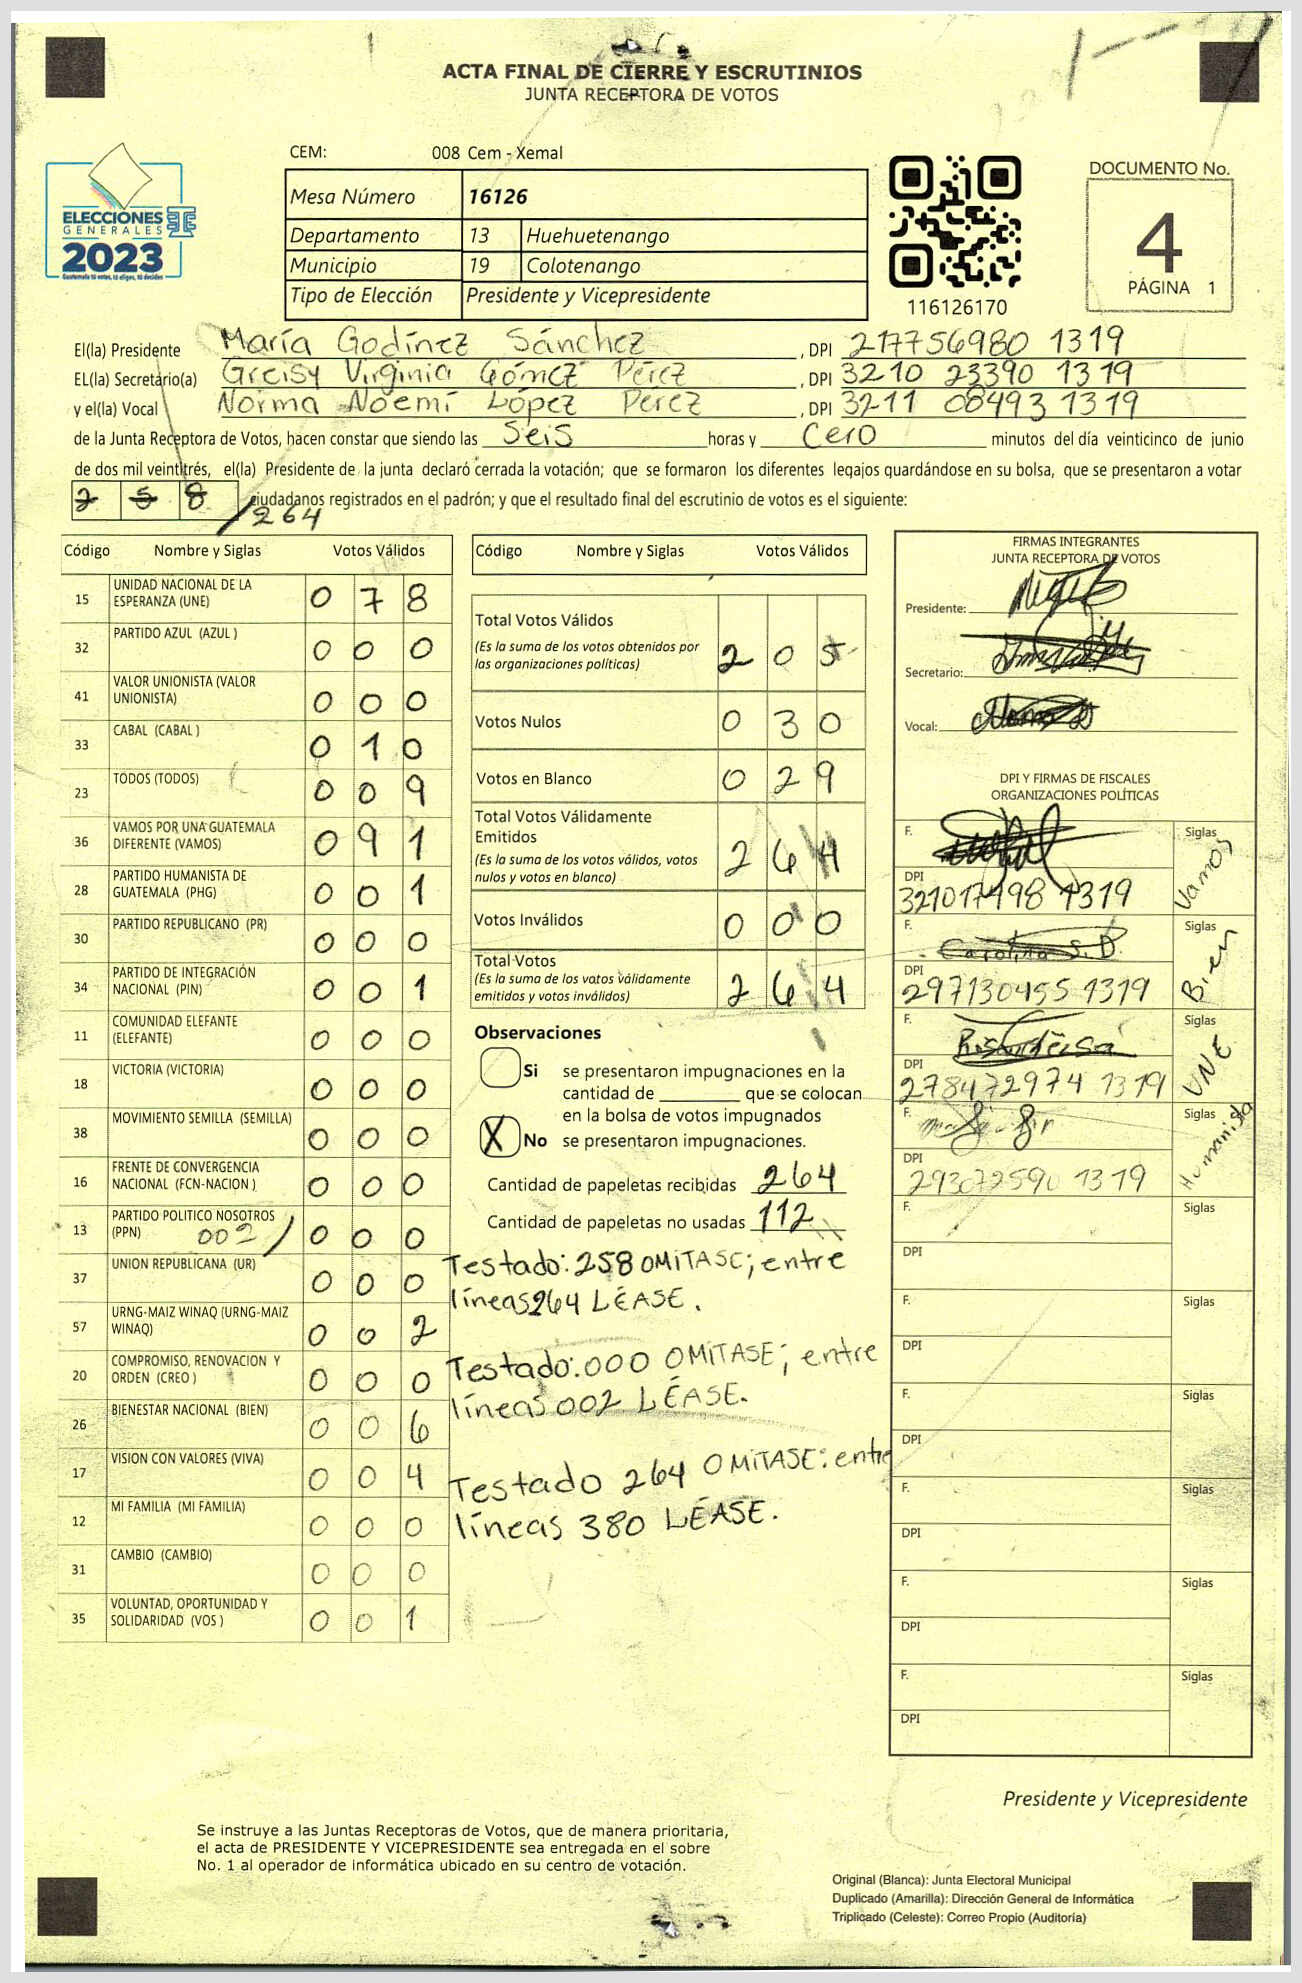 ACTA FINAL DE CIERRE Y ESCRUTINIOS
JUNTA RECEPTORA DE VOTOS
ELECCIONES
GENERALES
2023
Guatemala tú votas, tú eliges, tú decides
CEM: 008 Cem - Xemal
Mesa Número 16126
Departamento 13 Huehuetenango
Municipio 19 Colotenango
Tipo de Elección Presidente y Vicepresidente
116126170
DOCUMENTO No.
4
PÁGINA 1
El(la) Presidente María Godínez Sánchez, DPI 217756980 1319
EL(la) Secretario(a) Greisy Virginia Gómez Pérez, DPI 3210 23390 1319
y el(la) Vocal Norma Noemí López Pérez, DPI 3211 08493 1319
de la Junta Receptora de Votos, hacen constar que siendo las Seis horas y Cero minutos del día veinticinco de junio
de dos mil veintitrés, el(la) Presidente de la junta declaró cerrada la votación; que se formaron los diferentes legajos guardándose en su bolsa, que se presentaron a votar
2 5 8 /264 ciudadanos registrados en el padrón; y que el resultado final del escrutinio de votos es el siguiente:
Código Nombre y Siglas Votos Válidos
15 UNIDAD NACIONAL DE LA ESPERANZA (UNE) 0 7 8
32 PARTIDO AZUL (AZUL ) 0 0 0
41 VALOR UNIONISTA (VALOR UNIONISTA) 0 0 0
33 CABAL (CABAL ) 0 1 0
23 TODOS (TODOS) 0 0 9
36 VAMOS POR UNA GUATEMALA DIFERENTE (VAMOS) 0 9 1
28 PARTIDO HUMANISTA DE GUATEMALA (PHG) 0 0 1
30 PARTIDO REPUBLICANO (PR) 0 0 0
34 PARTIDO DE INTEGRACIÓN NACIONAL (PIN) 0 0 1
11 COMUNIDAD ELEFANTE (ELEFANTE) 0 0 0
18 VICTORIA (VICTORIA) 0 0 0
38 MOVIMIENTO SEMILLA (SEMILLA) 0 0 0
16 FRENTE DE CONVERGENCIA NACIONAL (FCN-NACION ) 0 0 0
13 PARTIDO POLITICO NOSOTROS (PPN) 002/ 0 0 0
37 UNION REPUBLICANA (UR) 0 0 0
57 URNG-MAIZ WINAQ (URNG-MAIZ WINAQ) 0 0 2
20 COMPROMISO, RENOVACION Y ORDEN (CREO ) 0 0 0
26 BIENESTAR NACIONAL (BIEN) 0 0 6
17 VISION CON VALORES (VIVA) 0 0 4
12 MI FAMILIA (MI FAMILIA) 0 0 0
31 CAMBIO (CAMBIO) 0 0 0
35 VOLUNTAD, OPORTUNIDAD Y SOLIDARIDAD (VOS ) 0 0 1
Código Nombre y Siglas Votos Válidos
Total Votos Válidos
(Es la suma de los votos obtenidos por
las organizaciones políticas) 2 0 5
Votos Nulos 0 3 0
Votos en Blanco 0 2 9
Total Votos Válidamente
Emitidos
(Es la suma de los votos válidos, votos
nulos y votos en blanco) 2 6 4
Votos Inválidos 0 0 0
Total Votos
(Es la suma de los votos válidamente
emitidos y votos inválidos) 2 6 4
Observaciones
Si se presentaron impugnaciones en la
cantidad de ________ que se colocan
en la bolsa de votos impugnados
X No se presentaron impugnaciones.
Cantidad de papeletas recibidas 264
Cantidad de papeletas no usadas 112
Testado: 258 OMITASE; entre
líneas 264 LÉASE.
Testado: 000 OMITASE; entre
líneas 002 LÉASE.
Testado 264 OMITASE: entre
líneas 380 LÉASE.
FIRMAS INTEGRANTES
JUNTA RECEPTORA DE VOTOS
Presidente:
Secretario:
Vocal:
DPI Y FIRMAS DE FISCALES
ORGANIZACIONES POLÍTICAS
F. Siglas Vamos
DPI 321017498 1319
F. Carolina S.D. Siglas Bien
DPI 297130455 1319
F. Siglas UNE
DPI 278472974 1319
F. Siglas Humanista
DPI 293072590 1319
F. Siglas
DPI
F. Siglas
DPI
F. Siglas
DPI
F. Siglas
DPI
F. Siglas
DPI
F. Siglas
DPI
Presidente y Vicepresidente
Se instruye a las Juntas Receptoras de Votos, que de manera prioritaria,
el acta de PRESIDENTE Y VICEPRESIDENTE sea entregada en el sobre
No. 1 al operador de informática ubicado en su centro de votación.
Original (Blanca): Junta Electoral Municipal
Duplicado (Amarilla): Dirección General de Informática
Triplicado (Celeste): Correo Propio (Auditoría)